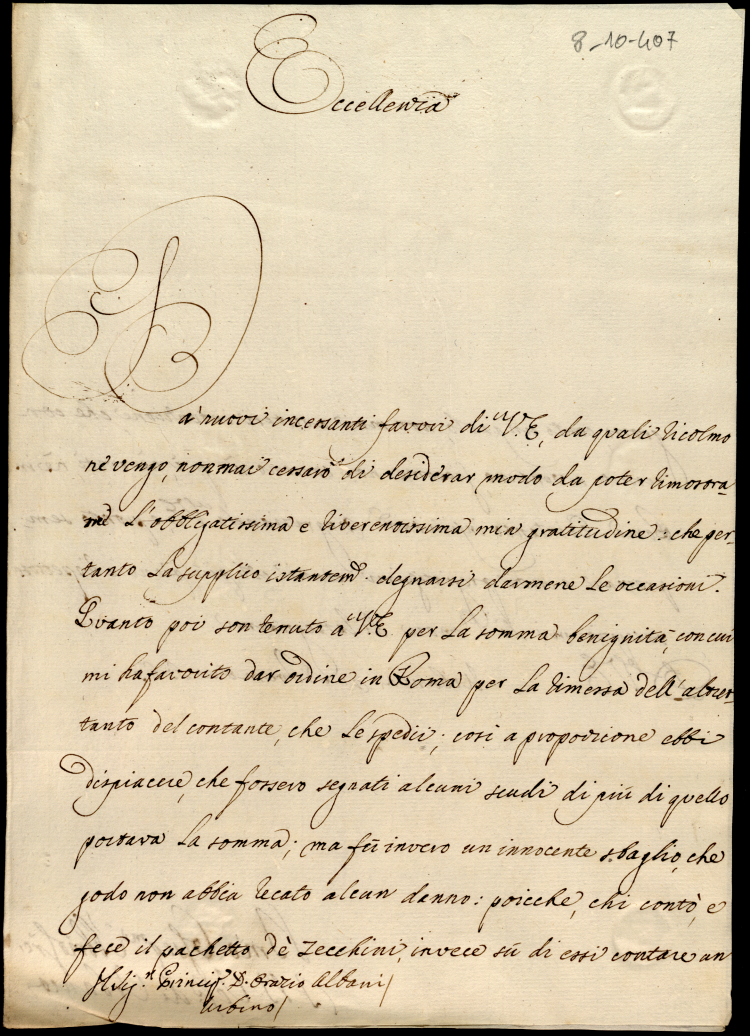 8-10-407
Eccellenza
Dà nuovi incessanti favori di V.E., da quali ricolmo
ne vengo, non mai cessarò di desiderar modo da poter dimostra-
rne l'obbligatissima e riverentissima mia gratitudine: che per-
tanto la supplico istantem.e degnarsi darmene le occasioni.
Quanto poi son tenuto a V.E. per la somma benignità, con cui
mi ha favorito dar ordine in Roma per la rimessa dell'altret-
tanto del contante, che le spedii; così a proporzione ebbi
dispiacere, che fossero segnati alcuni scudi di più di quello
portava la somma; ma fù invero un innocente sbaglio, che
godo non abbia recato alcun danno: poicche, chi contò, e
fece il pachetto dè zecchini, invece sù di essi contare un
Al Sig.r Princip.e D. Orazio Albani/
Urbino/